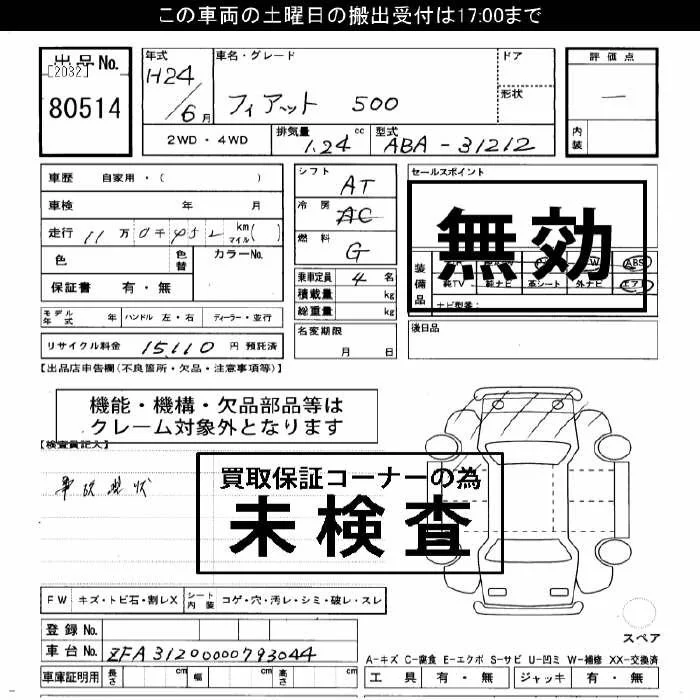 この車両の土曜日の搬出受付は17:00まで
出品No.
[2032]
80514
年式 H24/6月
車名・グレード フィアット 500
ドア
形状
評価点 —
内装
2WD・4WD
排気量 1.24cc
型式 ABA-31212
車歴 自家用・( )
車検 年 月
走行 11万0千452 km マイル( )
色 色替 カラーNo.
保証書 有・無
モデル年式 年 ハンドル 左・右 ディーラー・並行
リサイクル料金 15,110 円 預託済
シフト AT
冷房 AC
燃料 G
乗車定員 4 名
積載量 kg
総重量 kg
名変期限 月 日
セールスポイント
無効
装備品
ABS
純TV 純ナビ 革シート 外ナビ エアB
ナビ型番:
後日品
【出品店申告欄(不良箇所・欠品・注意事項等)】
機能・機構・欠品部品等は
クレーム対象外となります
【検査員記入】
事故現状
買取保証コーナーの為
未検査
FW キズ・トビ石・割レX シート内装 コゲ・穴・汚レ・シミ・破レ・スレ
登録No.
車台No. ZFA31200000793044
車庫証明用 長さ cm 幅 cm 高さ cm
スペア
A-キズ C-腐食 E-エクボ S-サビ U-凹ミ W-補修 XX-交換済
工具 有・無 ジャッキ 有・無